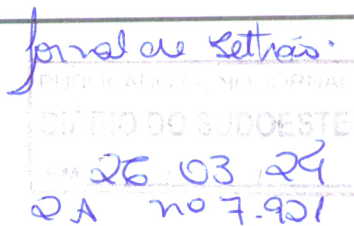 Jornal de Beltrão.
PUBLICADO NO JORNAL
DIÁRIO DO SUDOESTE
EM 26 03 24
2A nº 7.921